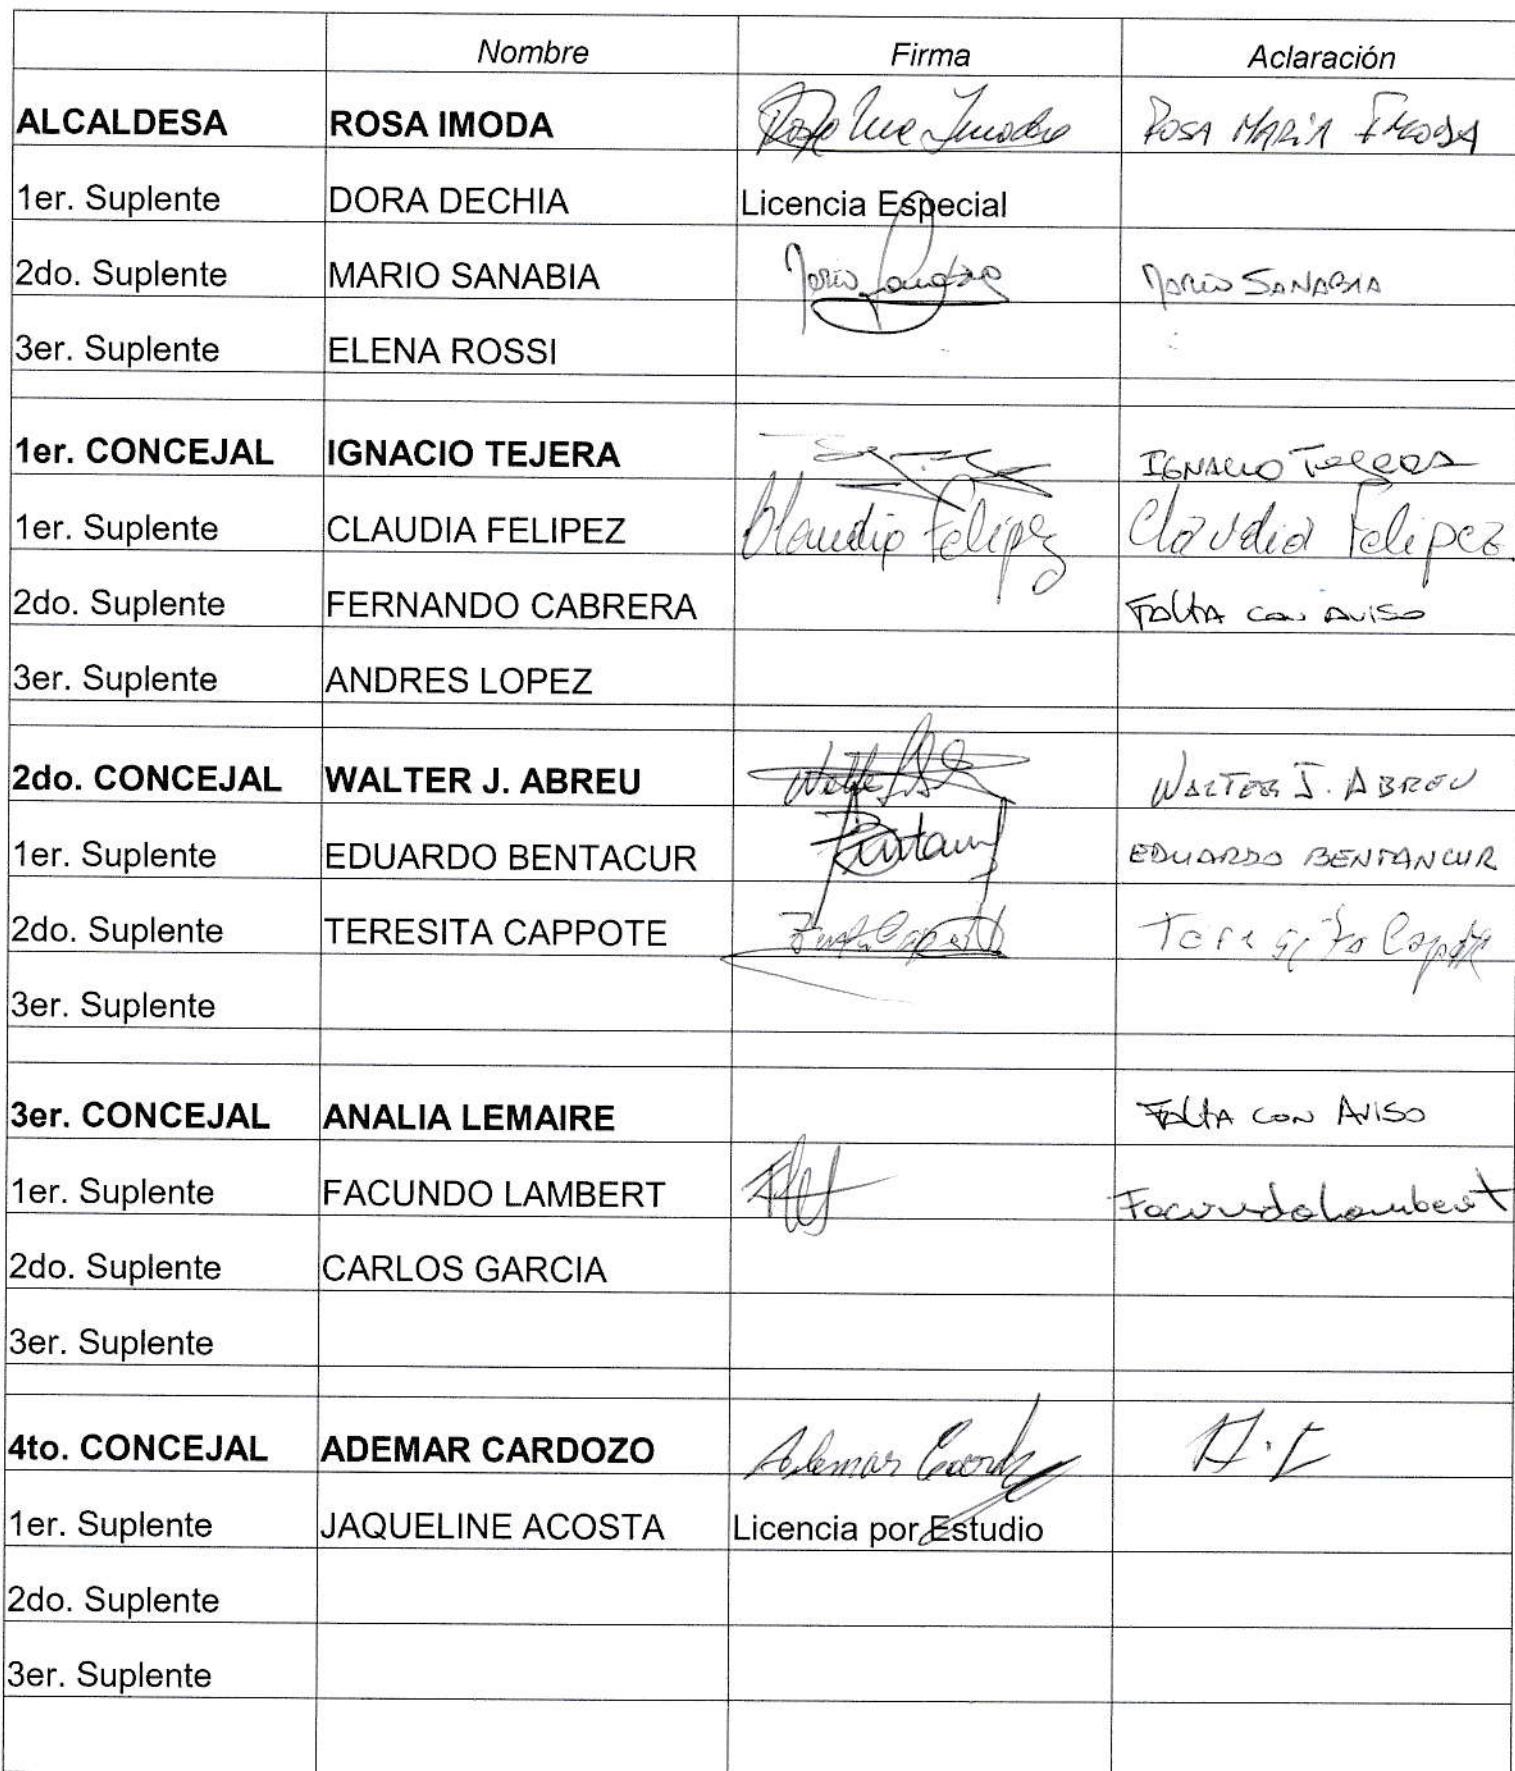 Nombre Firma Aclaración
ALCALDESA ROSA IMODA ROSA MARIA IMODA
1er. Suplente DORA DECHIA Licencia Especial
2do. Suplente MARIO SANABIA Mario SANABIA
3er. Suplente ELENA ROSSI
1er. CONCEJAL IGNACIO TEJERA IGNACIO TEJERA
1er. Suplente CLAUDIA FELIPEZ Claudia Felipez Claudia Felipez
2do. Suplente FERNANDO CABRERA FALTA CON AVISO
3er. Suplente ANDRES LOPEZ
2do. CONCEJAL WALTER J. ABREU WALTER J. ABREU
1er. Suplente EDUARDO BENTACUR EDUARDO BENTANCUR
2do. Suplente TERESITA CAPPOTE Teresita Capote
3er. Suplente
3er. CONCEJAL ANALIA LEMAIRE FALTA CON AVISO
1er. Suplente FACUNDO LAMBERT Facundo Lambert
2do. Suplente CARLOS GARCIA
3er. Suplente
4to. CONCEJAL ADEMAR CARDOZO Ademar
1er. Suplente JAQUELINE ACOSTA Licencia por Estudio
2do. Suplente
3er. Suplente